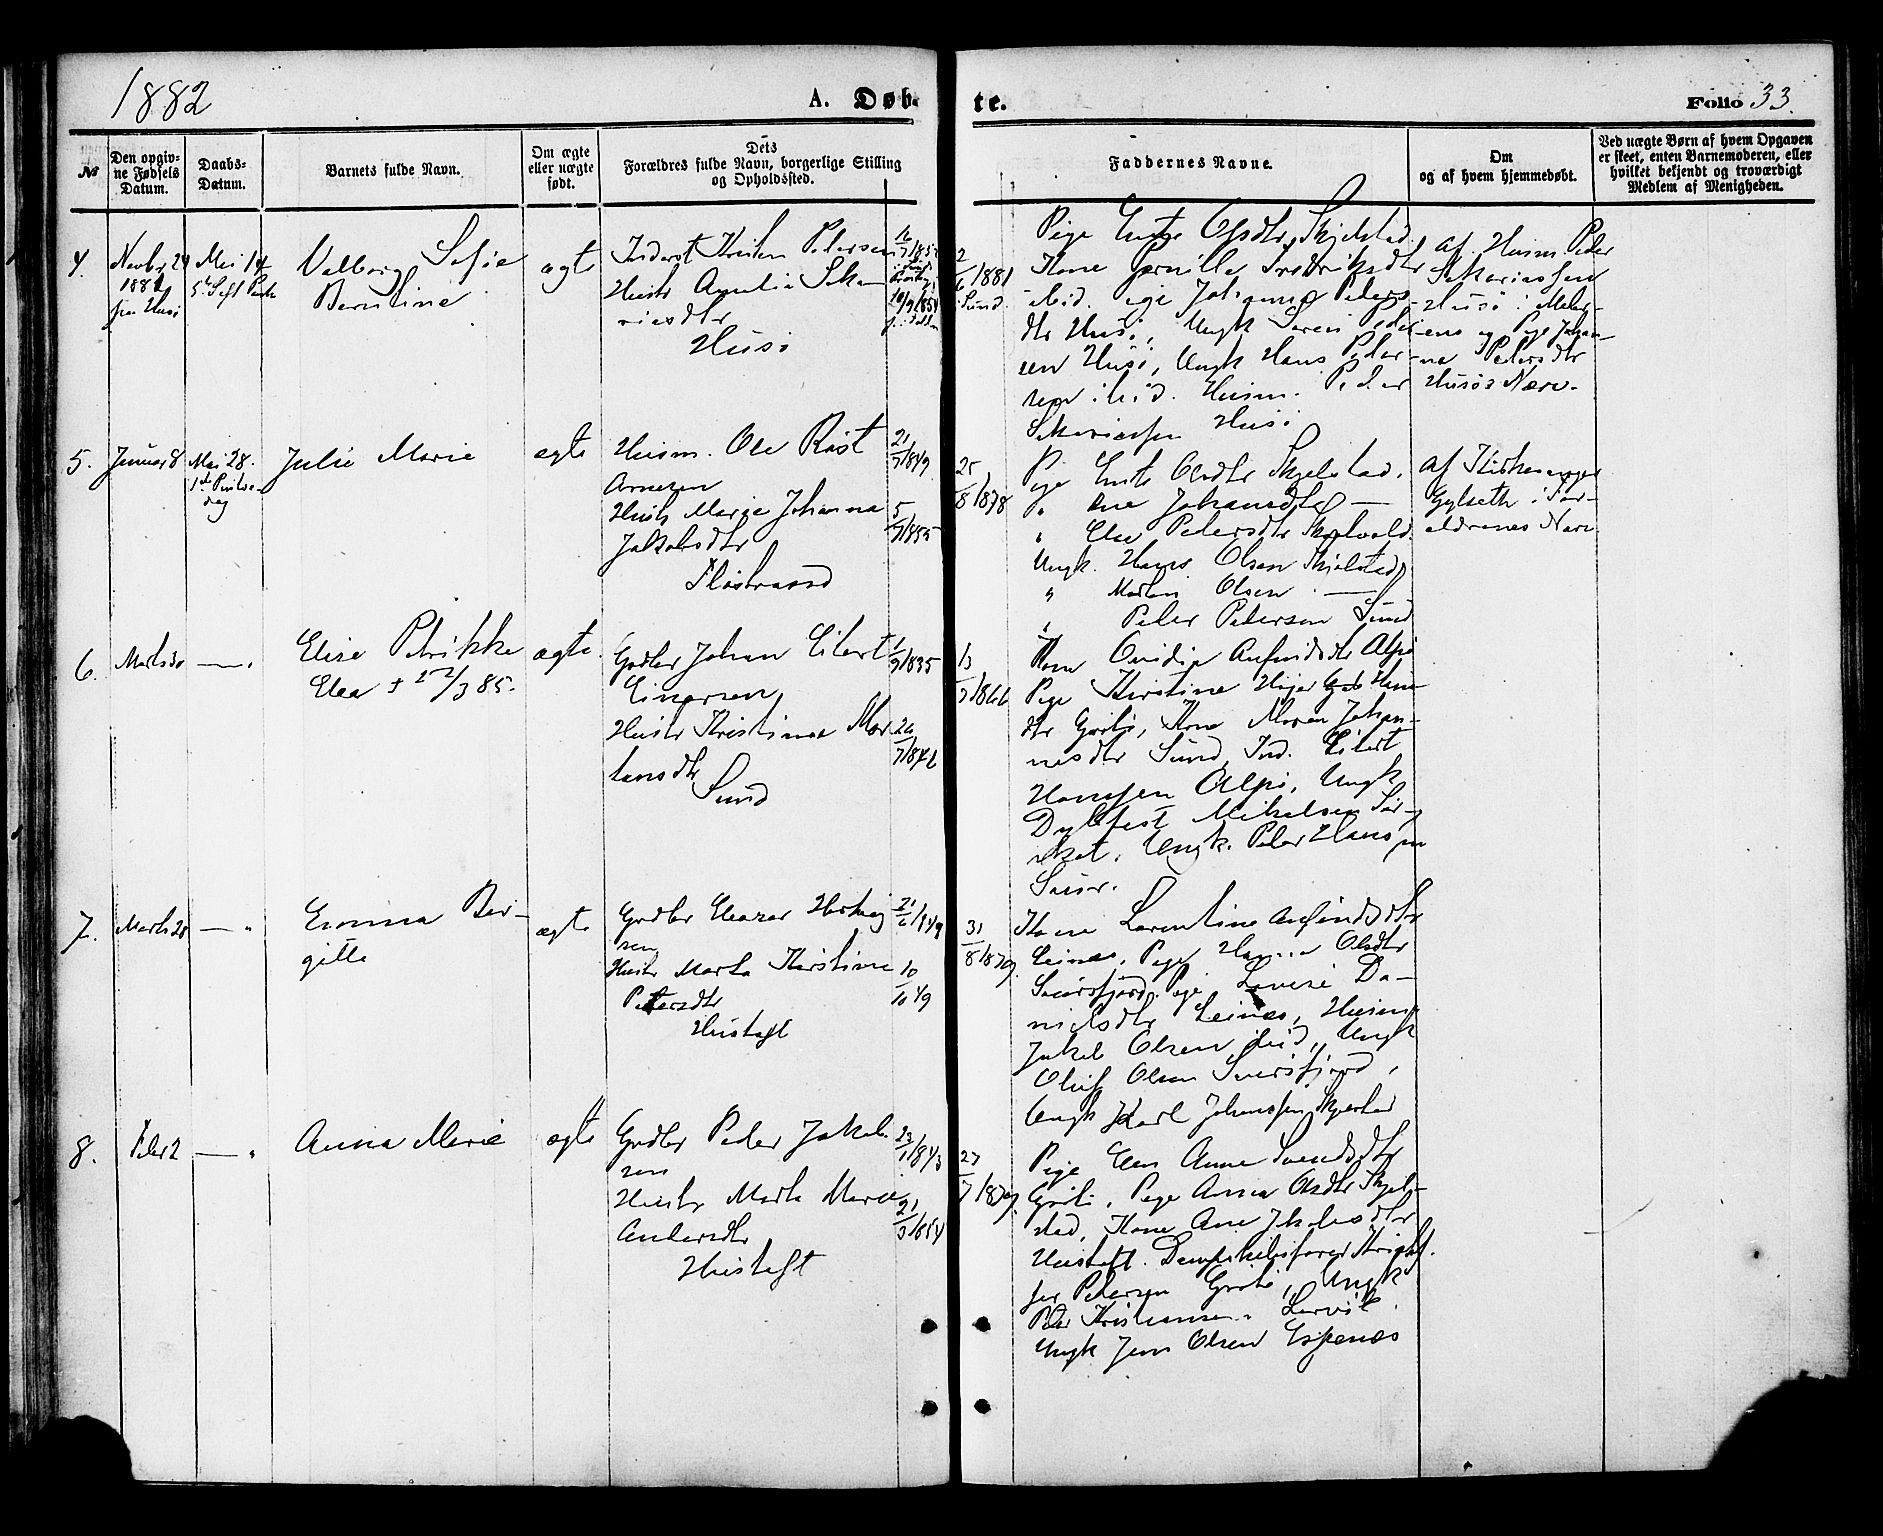 1882
A. Døb-
te.
Folio 33.
№
Den opgiv-
ne Fødsels
Datum.
Daabs-
Datum.
Barnets fulde Navn.
Om ægte
eller uægte
født.
Dets
Forældres fulde Navn, borgerlige Stilling
og Opholdssted.
Faddernes Navne.
Om
og af hvem hjemmedøbt.
Ved uægte Børn af hvem Opgaven
er skeet, enten Barnemoderen, eller
hvilket bekjendt og troværdigt
Medlem af Menigheden.
4.
Novbr 29
1881
Mai 14
Valborg Sofie
Berntine
ægte
Inderst Kristen Petersen
Hustr Amalia Seka-
riasdtr
Husö
2/6 1881
Sund.
Pige Olsdtr Skjelstad.
Kone Pernille Fredriksdtr
ibid. Pige Johanna Peders-
dtr Husö, Ungk Sören Peder-
sen Husö, Ungk Hans Peder-
sen ibid. Husm. Peder
Sekariassen Husö
af Husm. Peder
Sekariassen
Husö i Mode-
rens og Pige Johan-
na Pedersdtr
Husös Nærv.
5.
Januar 8
Mai 28.
1ste Pintse-
dag
Julie Marie
ægte
Husm. Ole Rist
Arnesen
Hustr Marie Johanna
Jakobsdtr
21/7 1849
5/7 1855
25/8 1878
Pige Olsdtr Skjelstad.
" Ane Johansdtr —
" Else Pedersdtr
Ungk. Hans Olsen Skjelstad
" Martin Olsen —
" Peder Pedersen Sund
af Kirkesanger
Gylseth i For-
ældrenes Nærv
6.
Marts 30
— "
Elise Petrikke
Elea † 22/3 85.
ægte
Grdbr Johan Eilert
Einarsen
Hustr Kristianna Mor-
tensdtr
Sund
1/9 1835
26/7 1846
13/7 1866
Kone Ovidia Anfindsdtr Alpö
Pige Kirstine Hans-
dtr Grötö, Kone Maren Johan-
nesdtr Sund, Ind. Eilert
Hanssen Alpö, Ungk
Dyblfest Mikalsen Sör-
Ungk. Peder Hanssen
7.
Marts 28
— "
Emma Ber-
gitte
ægte
Grdbr Eleazar Hartvig-
sen
Hustr Marta Kirstine
Petersdtr
Hustoft
21/6 1849
10/10 49
31/8 1879.
Kone Lorentine Anfindsdtr
Leines, Pige Hanna Olsdtr
Pige Lovise Da-
nielsdtr Leines, Husm
Jakob Olsen ibid, Ungk
Oluf Olsen
Ungk Karl Johanssen
8.
Febr 2
— "
Anna Marie
ægte
Grdbr Peder Jakob-
sen
Hustr Marta Marie
Andersdtr
Hustoft
23/1 1843
21/3 1854
27/7 1879.
Pige Elen Anne Svendsdtr
Grötö, Pige Anna Olsdtr Skjel-
stad, Kone Ane Jakobsdtr
Hustoft. Dampskibsförer Kristof-
fer Pedersen Grötö, Ungk
Peder Kristiansen Lervik
Ungk Jens Olsen Espenes